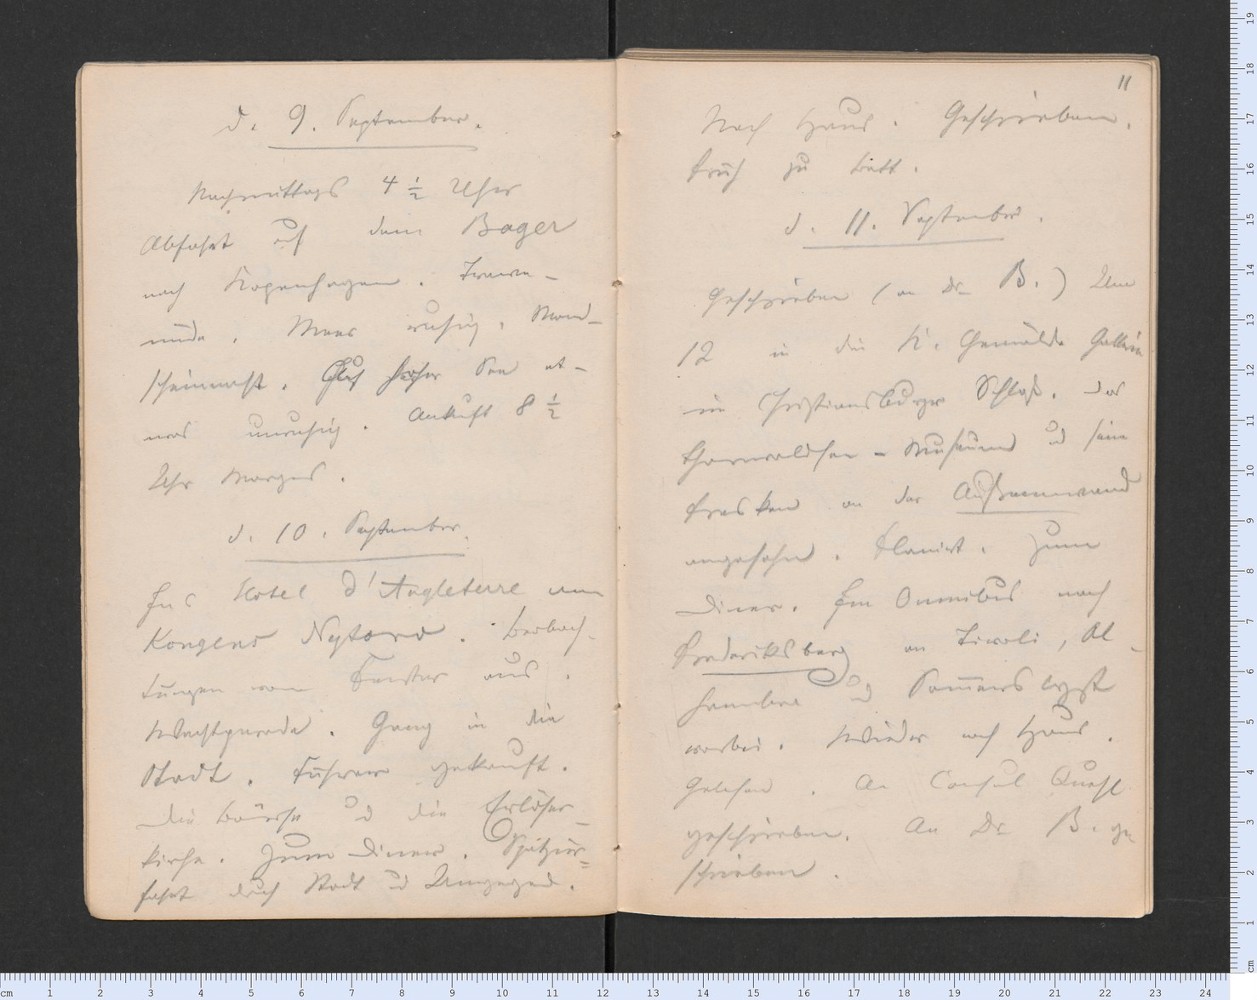 d. 9. September.
Nachmittags 4 ½ Uhr
Abfahrt auf dem Bager
nach Kopenhagen. Trave-
münde. Meer ruhig. Mond-
scheinnacht. Auf hoher See et-
was unruhig. Ankuft 8 ½
Uhr Morgens.
d. 10. September.
Ins Hotel d'Angleterre am
Kongens Nytorv. Beobach-
tungen vom Fenster aus.
Wachtparade. Gang in die
Stadt. Führer gekauft.
Die Börse und die Erlöser-
kirche. Zum Diner. Spazier-
fahrt durch Stadt und Umgegend.
11
Nach Haus. Geschrieben.
Früh zu Bett.
d. 11. September.
Geschrieben (an Dr. B.) Um
12 in die K. Gemälde Gallerie
im Christiansburger Schloß. Das
Thorwaldsen-Museum und seine
Fresken an der Außenwand
angesehen. Flanirt. Zum
Diner. Im Omnibus nach
Frederiksberg an Tivoli, Al-
hambra und Sommerslyst
vorbei. Wieder nach Haus.
Gelesen. An Consul Quehl
geschrieben. An Dr. B. ge
schrieben.